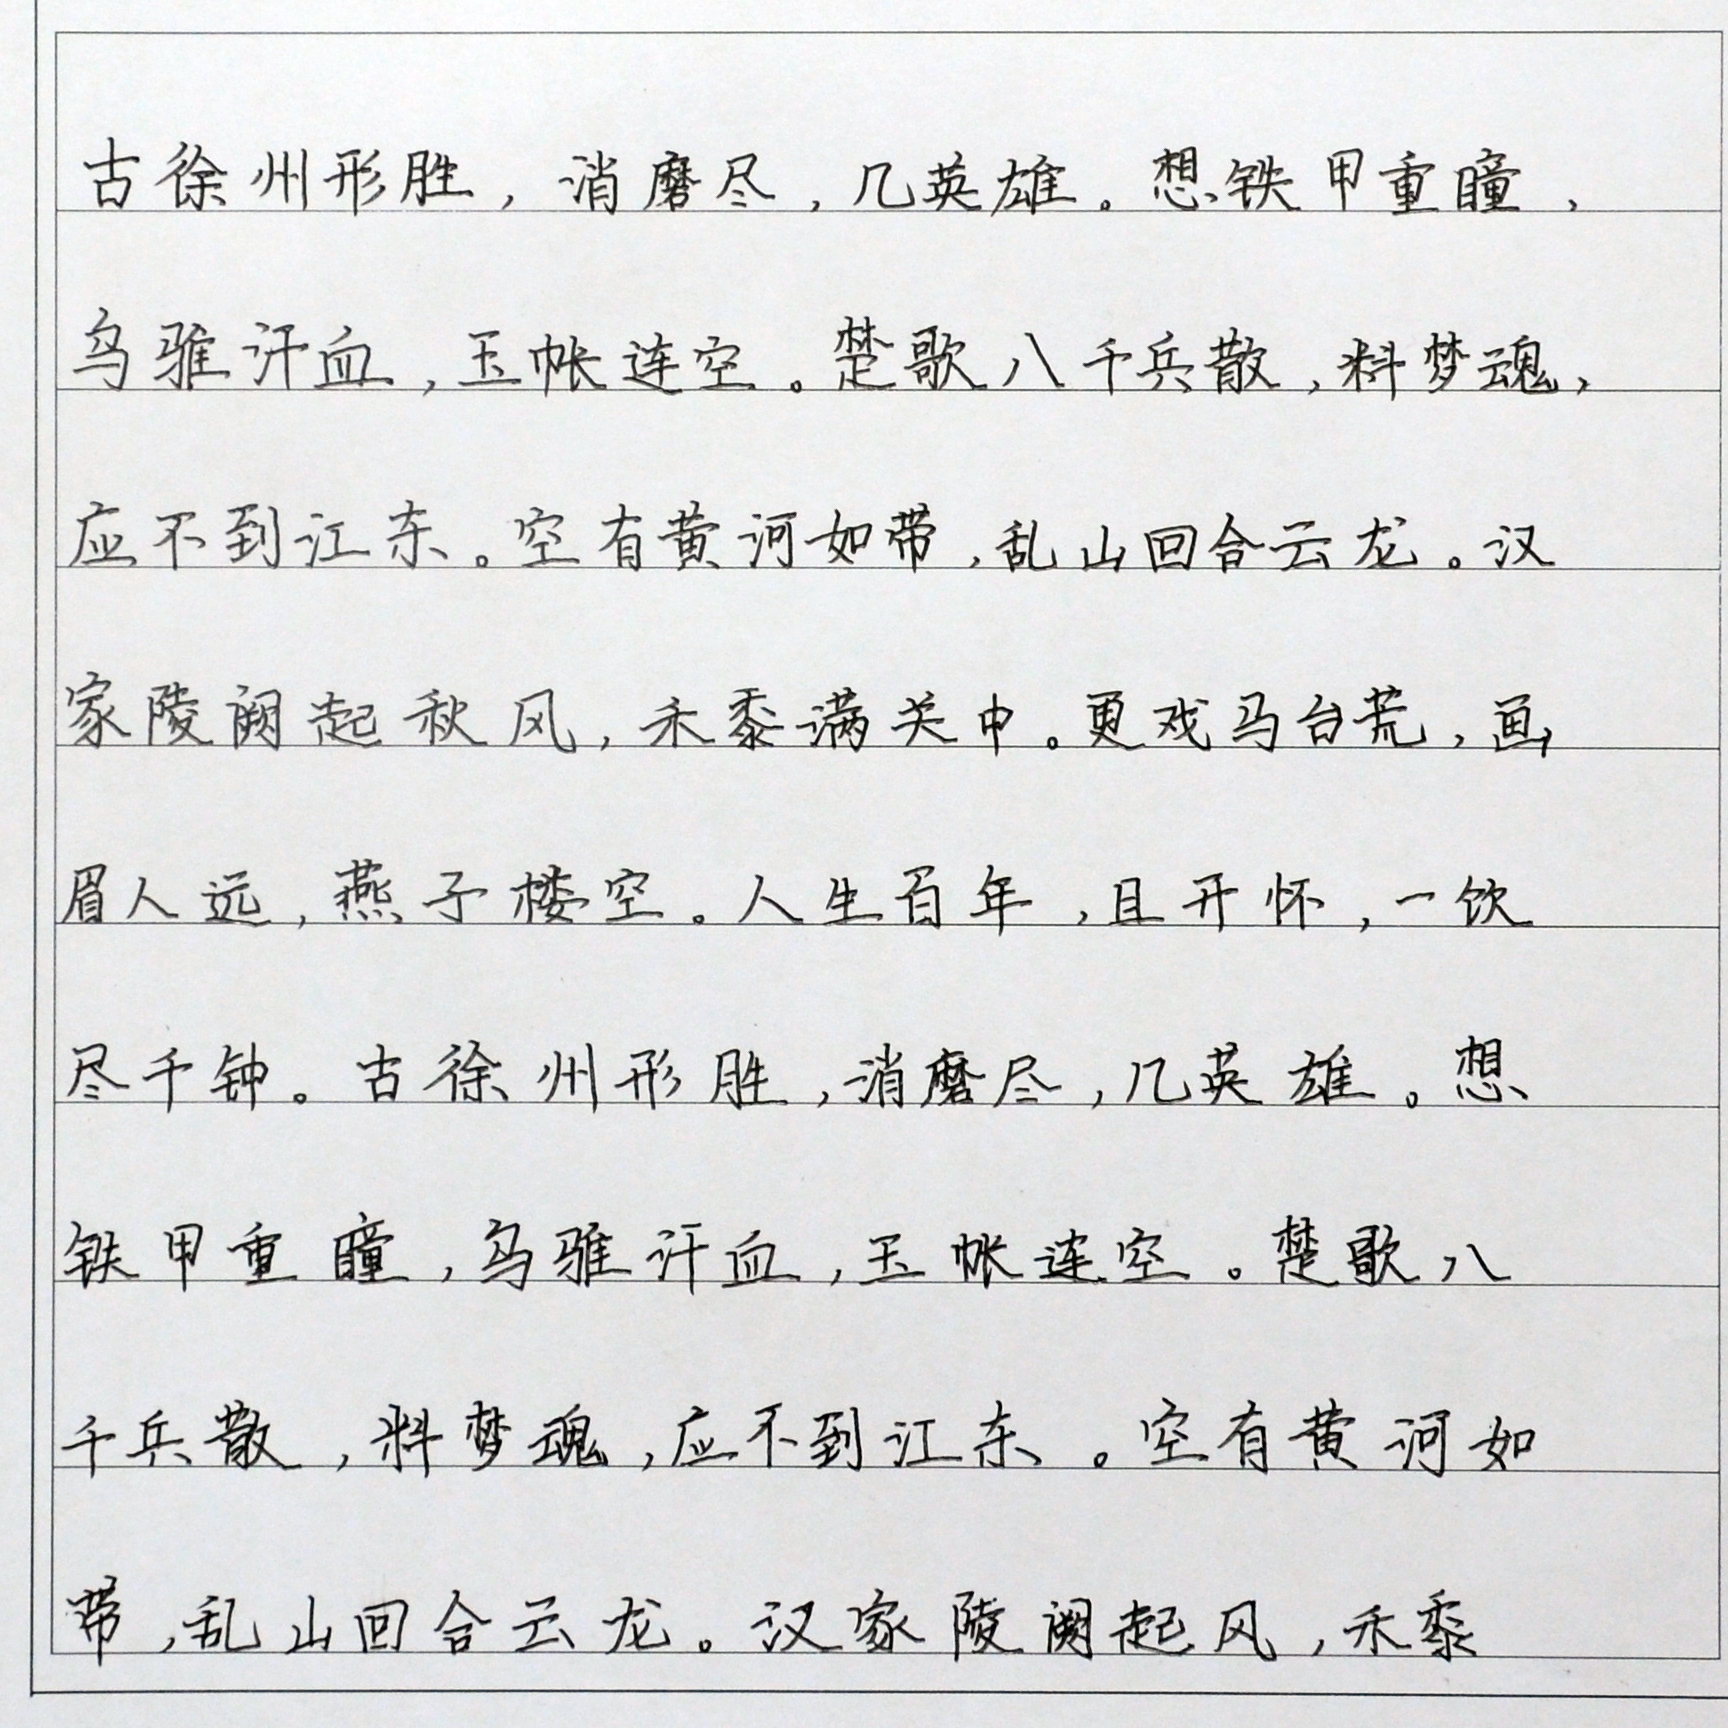 古徐州形胜，消磨尽，几英雄。想铁甲重瞳，
乌骓汗血，玉帐连空。楚歌八千兵散，料梦魂，
应不到江东。空有黄河如带，乱山回合云龙。汉
家陵阙起秋风，禾黍满关中。更戏马台荒，画
眉人远，燕子楼空。人生百年，且开怀，一饮
尽千钟。古徐州形胜，消磨尽，几英雄。想
铁甲重瞳，乌骓汗血，玉帐连空。楚歌八
千兵散，料梦魂，应不到江东。空有黄河如
带，乱山回合云龙。汉家陵阙起风，禾黍